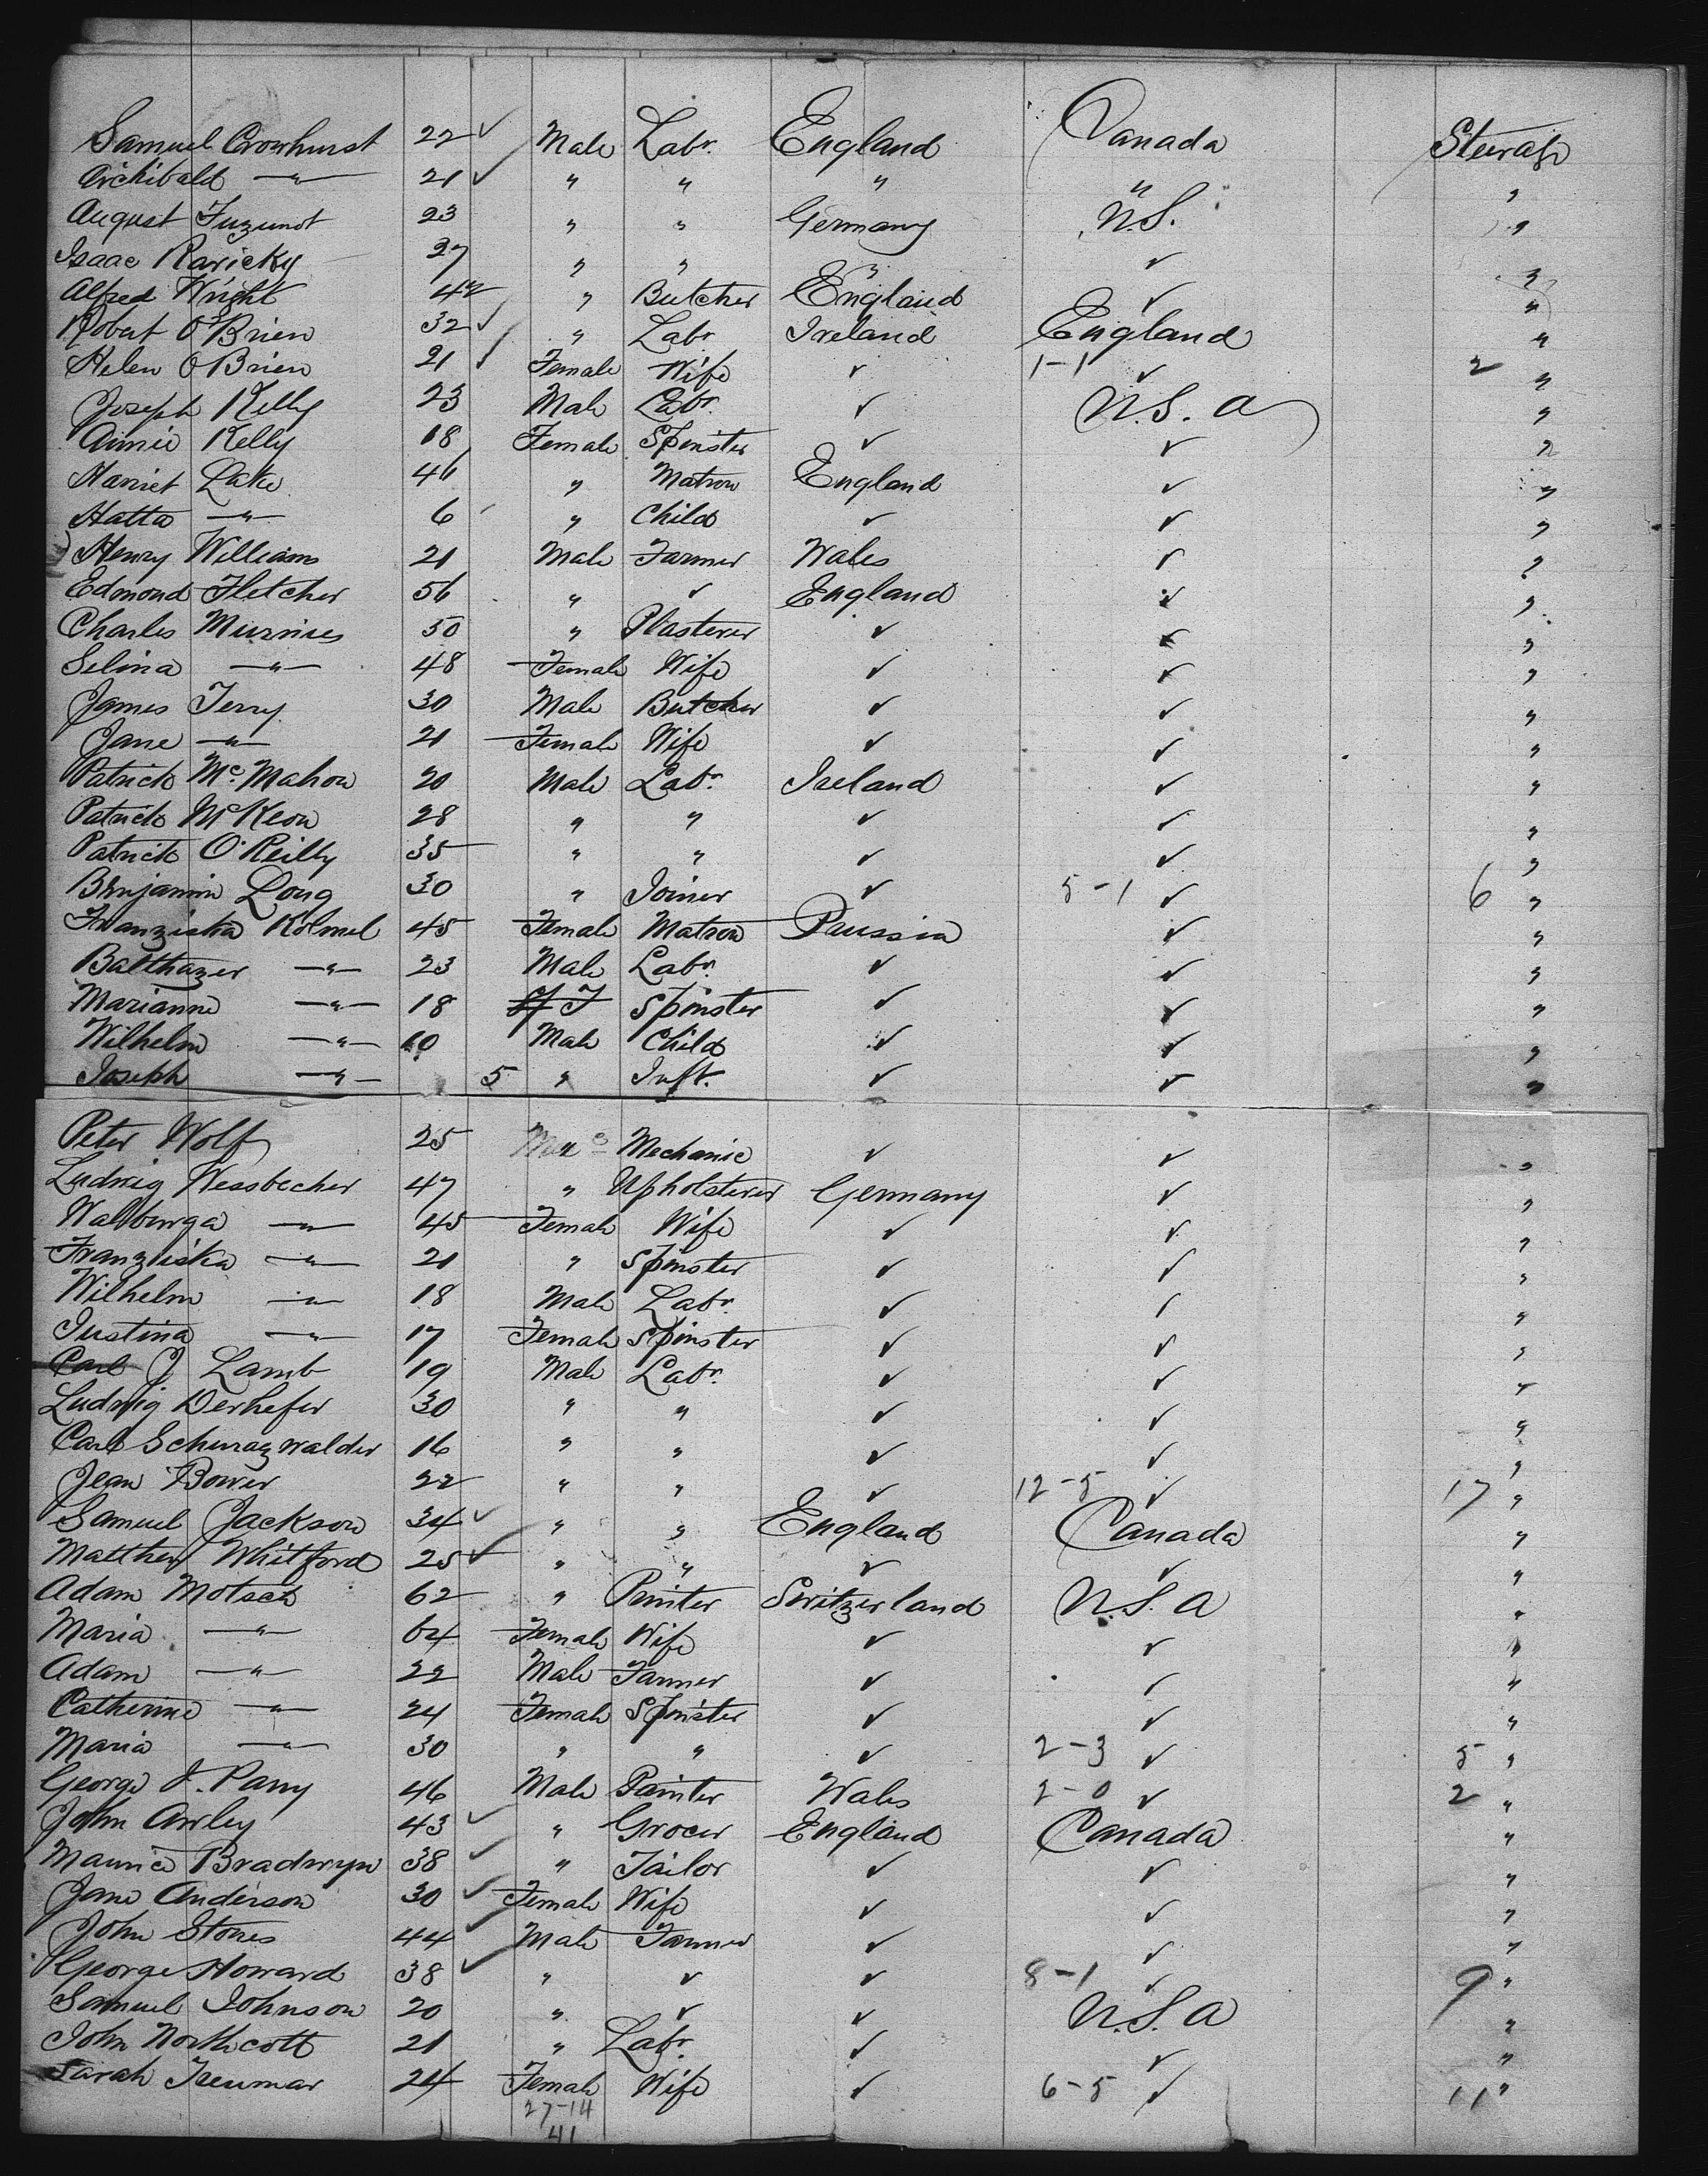 Samuel Crowhurst 22 ✓ Male Labr. England Canada Steerage
Archibald —"— 21 ✓ " " " " "
August 23 " " Germany U.S. "
Isaac Raricky 27 " " " ✓ "
Alfred Wright 42 " Butcher England ✓ "
Robert O'Brien 32 ✓ " Labr Ireland England "
Helen O'Brien 21 ✓ Female Wife ✓ 1-1 ✓ 2 "
Joseph Kelly 23 Male Labr. ✓ U.S.A "
Annie Kelly 18 Female Spinster ✓ ✓ "
Harriet Lake 46 " Matron England ✓ "
Hatta —"— 6 " Child ✓ ✓ "
Henry Williams 21 Male Farmer Wales ✓ "
Edmond Fletcher 56 " ✓ England ✓ "
Charles 50 " Plasterer ✓ ✓ "
Selina —"— 48 Female Wife ✓ ✓ "
James Terry 30 Male Butcher ✓ ✓ "
Jane —"— 21 Female Wife ✓ ✓ "
Patrick McMahon 20 Male Labr. Ireland ✓ "
Patrick McKeon 28 " " ✓ ✓ "
Patrick O'Reilly 35 " " ✓ ✓ "
Benjamin Long 30 " Joiner ✓ 5-1 ✓ 6 "
Franziska Kolmel 45 Female Matron Prussia ✓ "
Balthazer —"— 23 Male Labr. ✓ ✓ "
Marianne —"— 18 F Spinster ✓ ✓ "
Wilhelm —"— 10 Male Child ✓ ✓ "
Joseph —"— 5 " Inft. ✓ ✓ "
Peter Wolf 25 Male Mechanic ✓ ✓ "
Ludwig Wessbecher 47 " Upholsterer Germany ✓ "
Walburga —"— 45 Female Wife ✓ ✓ "
Franziska —"— 21 " Spinster ✓ ✓ "
Wilhelm —"— 18 Male Labr. ✓ ✓ "
Justina —"— 17 Female Spinster ✓ ✓ "
Carl J Lamb 19 Male Labr. ✓ ✓ "
Ludwig Derhefer 30 " " ✓ ✓ "
Carl Schwazwalder 16 " " ✓ ✓ "
Jean Bower 22 " " ✓ 12-5 ✓ 17 "
Samuel Jackson 34 ✓ " " England Canada "
Matthew Whitford 25 ✓ " " ✓ ✓ "
Adam Motsch 62 " Printer Switzerland U.S.A "
Maria —"— 64 Female Wife ✓ ✓ "
Adam —"— 22 Male Farmer ✓ ✓ "
Catherine —"— 24 Female Spinster ✓ ✓ "
Maria —"— 30 " " ✓ 2-3 ✓ 5 "
George J. Parry 46 Male Painter Wales 2-0 ✓ 2 "
John Awley 43 ✓ " Grocer England Canada "
Maurice Bradwyn 38 ✓ " Tailor ✓ ✓ "
Jane Anderson 30 ✓ Female Wife ✓ ✓ "
John Stones 44 ✓ Male Farmer ✓ ✓ "
George Howard 38 ✓ " ✓ ✓ 8-1 ✓ 9 "
Samuel Johnson 20 " ✓ ✓ U.S.A "
John Northcott 21 " Labr. ✓ ✓ "
Sarah 24 Female Wife ✓ 6-5 ✓ 11 "
27-14
41